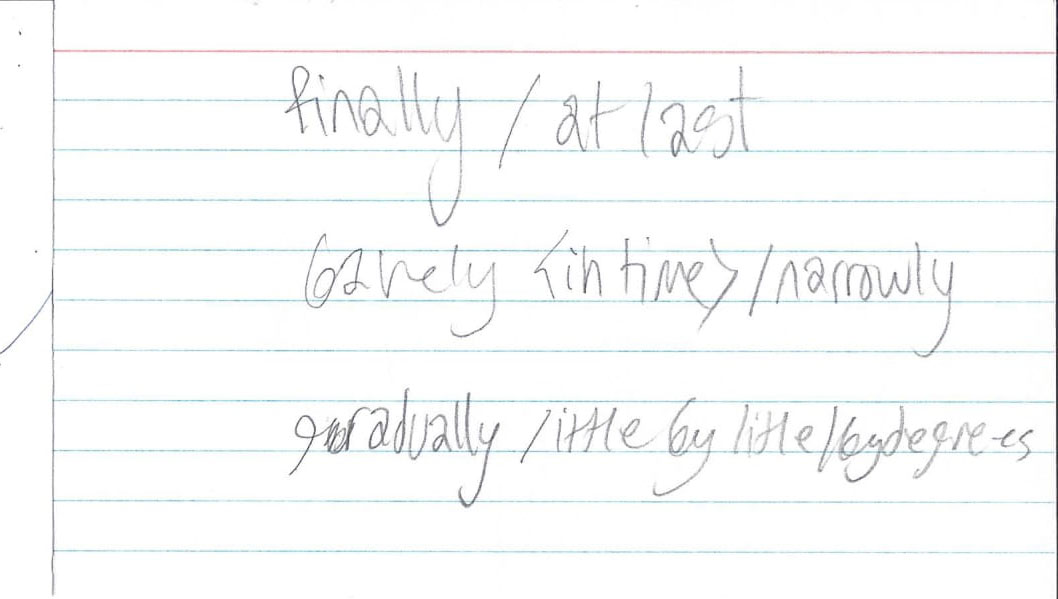 finally / at last
barely <in time> / narrowly
gradually / little by little / by degrees